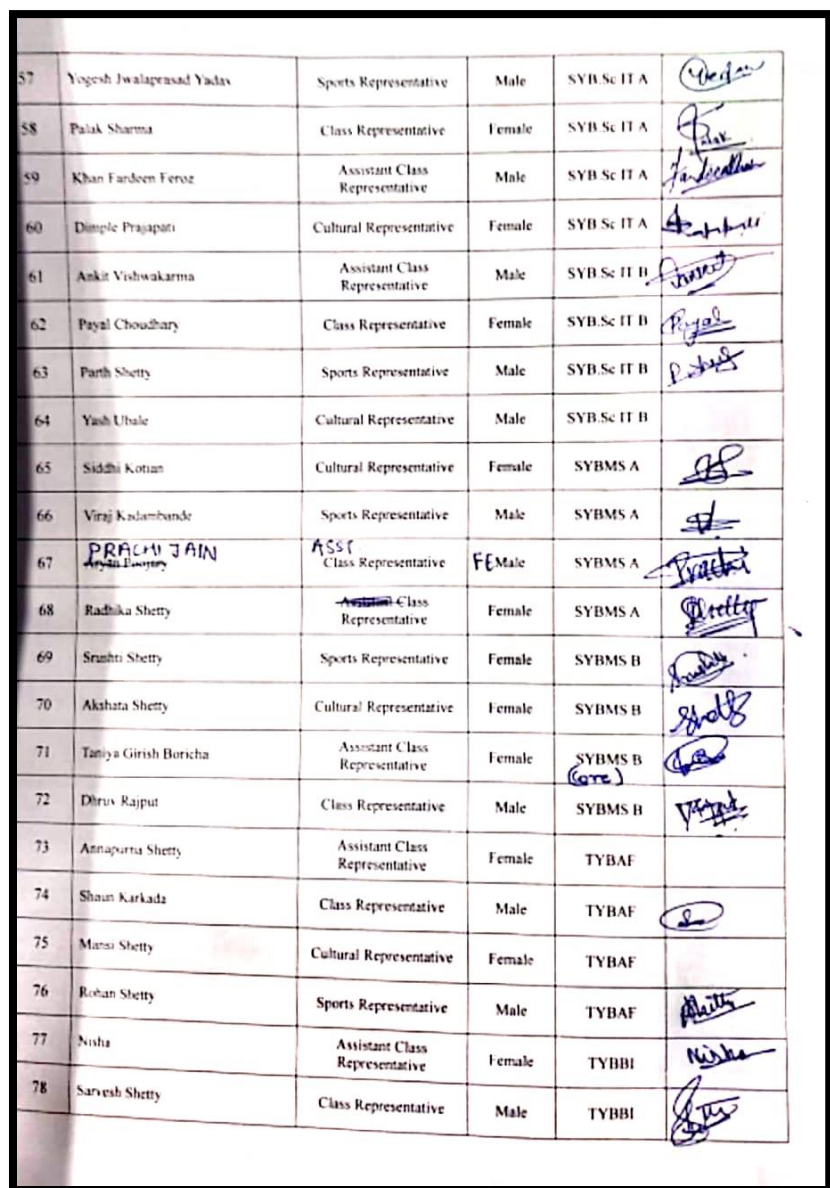 57 Yogesh Jwalaprasad Yadav Sports Representative Male SYB.Sc IT A
58 Palak Sharma Class Representative Female SYB.Sc IT A
59 Khan Fardeen Feroz Assistant Class Representative Male SYB.Sc IT A
60 Dimple Prajapati Cultural Representative Female SYB.Sc IT A
61 Ankit Vishwakarma Assistant Class Representative Male SYB.Sc IT B
62 Payal Choudhary Class Representative Female SYB.Sc IT B Payal
63 Parth Shetty Sports Representative Male SYB.Sc IT B
64 Yash Ubale Cultural Representative Male SYB.Sc IT B
65 Siddhi Kotian Cultural Representative Female SYBMS A
66 Viraj Kadambande Sports Representative Male SYBMS A
PRACHI JAIN ASST
67 Aryan Poojary Class Representative FEMale SYBMS A Prachi
68 Radhika Shetty Assistant Class Representative Female SYBMS A Shetty
69 Srushti Shetty Sports Representative Female SYBMS B
70 Akshata Shetty Cultural Representative Female SYBMS B
71 Taniya Girish Boricha Assistant Class Representative Female SYBMS B
72 Dhruv Rajput Class Representative Male SYBMS B
73 Annapurna Shetty Assistant Class Representative Female TYBAF
74 Shaun Karkada Class Representative Male TYBAF
75 Mansi Shetty Cultural Representative Female TYBAF
76 Rohan Shetty Sports Representative Male TYBAF
77 Nisha Assistant Class Representative Female TYBBI Nisha
78 Sarvesh Shetty Class Representative Male TYBBI